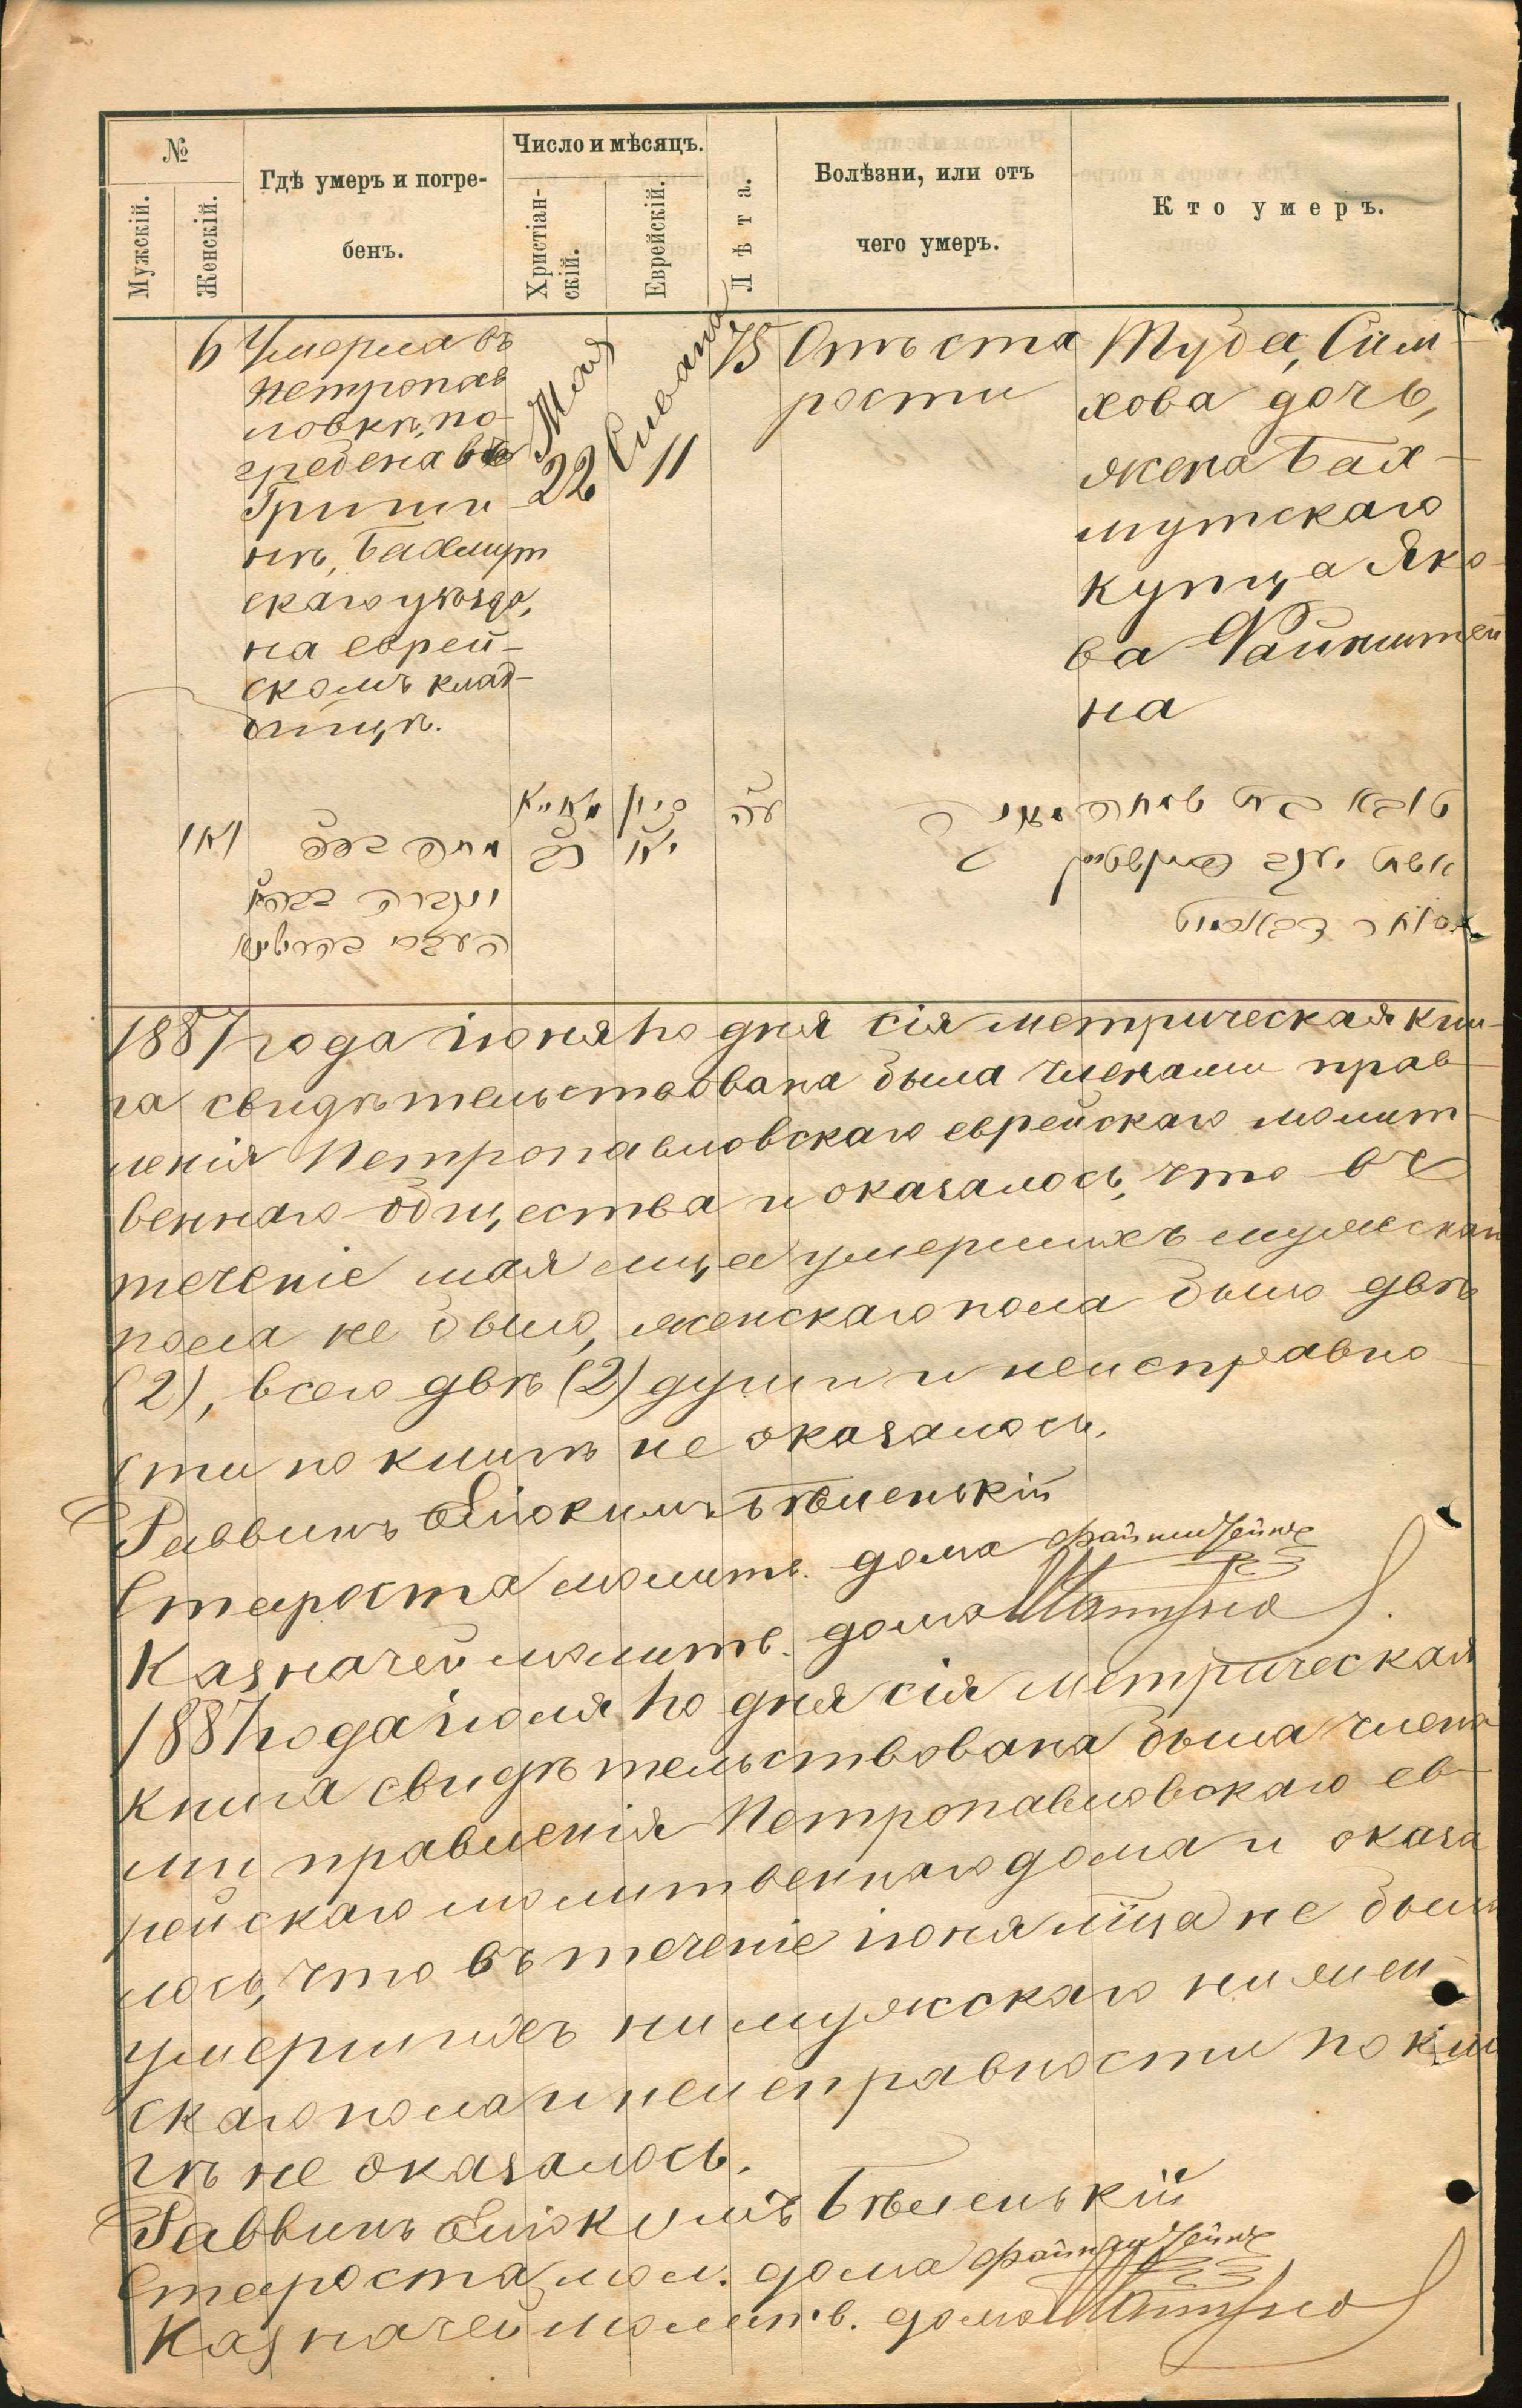 №
Мужскій.
Женскій.
Гдѣ умеръ и погре-
бенъ.
Число и мѣсяцъ.
Христіан-
скій.
Еврейскій.
Лѣта.
Болѣзни, или отъ
чего умеръ.
Кто умеръ.
6
Умерла въ
Петропав
ловкѣ, по-
гребена въ
Гриши-
нѣ, Бахмут
скаго уѣзда,
на еврей-
скомъ клад-
бищѣ.
Мая
22
Сивана
11
75
Отъ ста
рости
Туба, Сим-
хова дочь,
жена Бах-
мутскаго
купца Яко-
ва Файнштей
на
מאייא
סיון
עה
טובא בת שמחה
מתה בפפ
כב
יא
אשת יעקב
ונקברה בבה״ק
סוחר דבאחמוט
1887 года іюня 1го дня сія метрическая кни-
га свидѣтельствована была членами прав-
ленія Петропавловскаго еврейскаго молит-
веннаго общества и оказалось, что въ
теченіе мая мца умершихъ мужскаго
пола не было, женскаго пола было двѣ
(2), всего двѣ (2) души и неисправно-
сти по книгѣ не оказалось.
Раввинъ Еліокимъ Бѣленькій
Староста молитв. дома Файнштейнъ
Казначей молитв. дома
1887 года іюля 1го дня сія метрическая
книга свидѣтельствована была члена
ми правленія Петропавловскаго ев-
рейскаго молитвеннаго дома и оказа
лось, что въ теченіе іюня мца не было
умершихъ ни мужскаго ни жен-
скаго пола и неисправности по кни
гѣ не оказалось.
Раввинъ Еліокимъ Бѣленькій
Староста мол. дома Файнштейнъ
Казначей молитв. дома